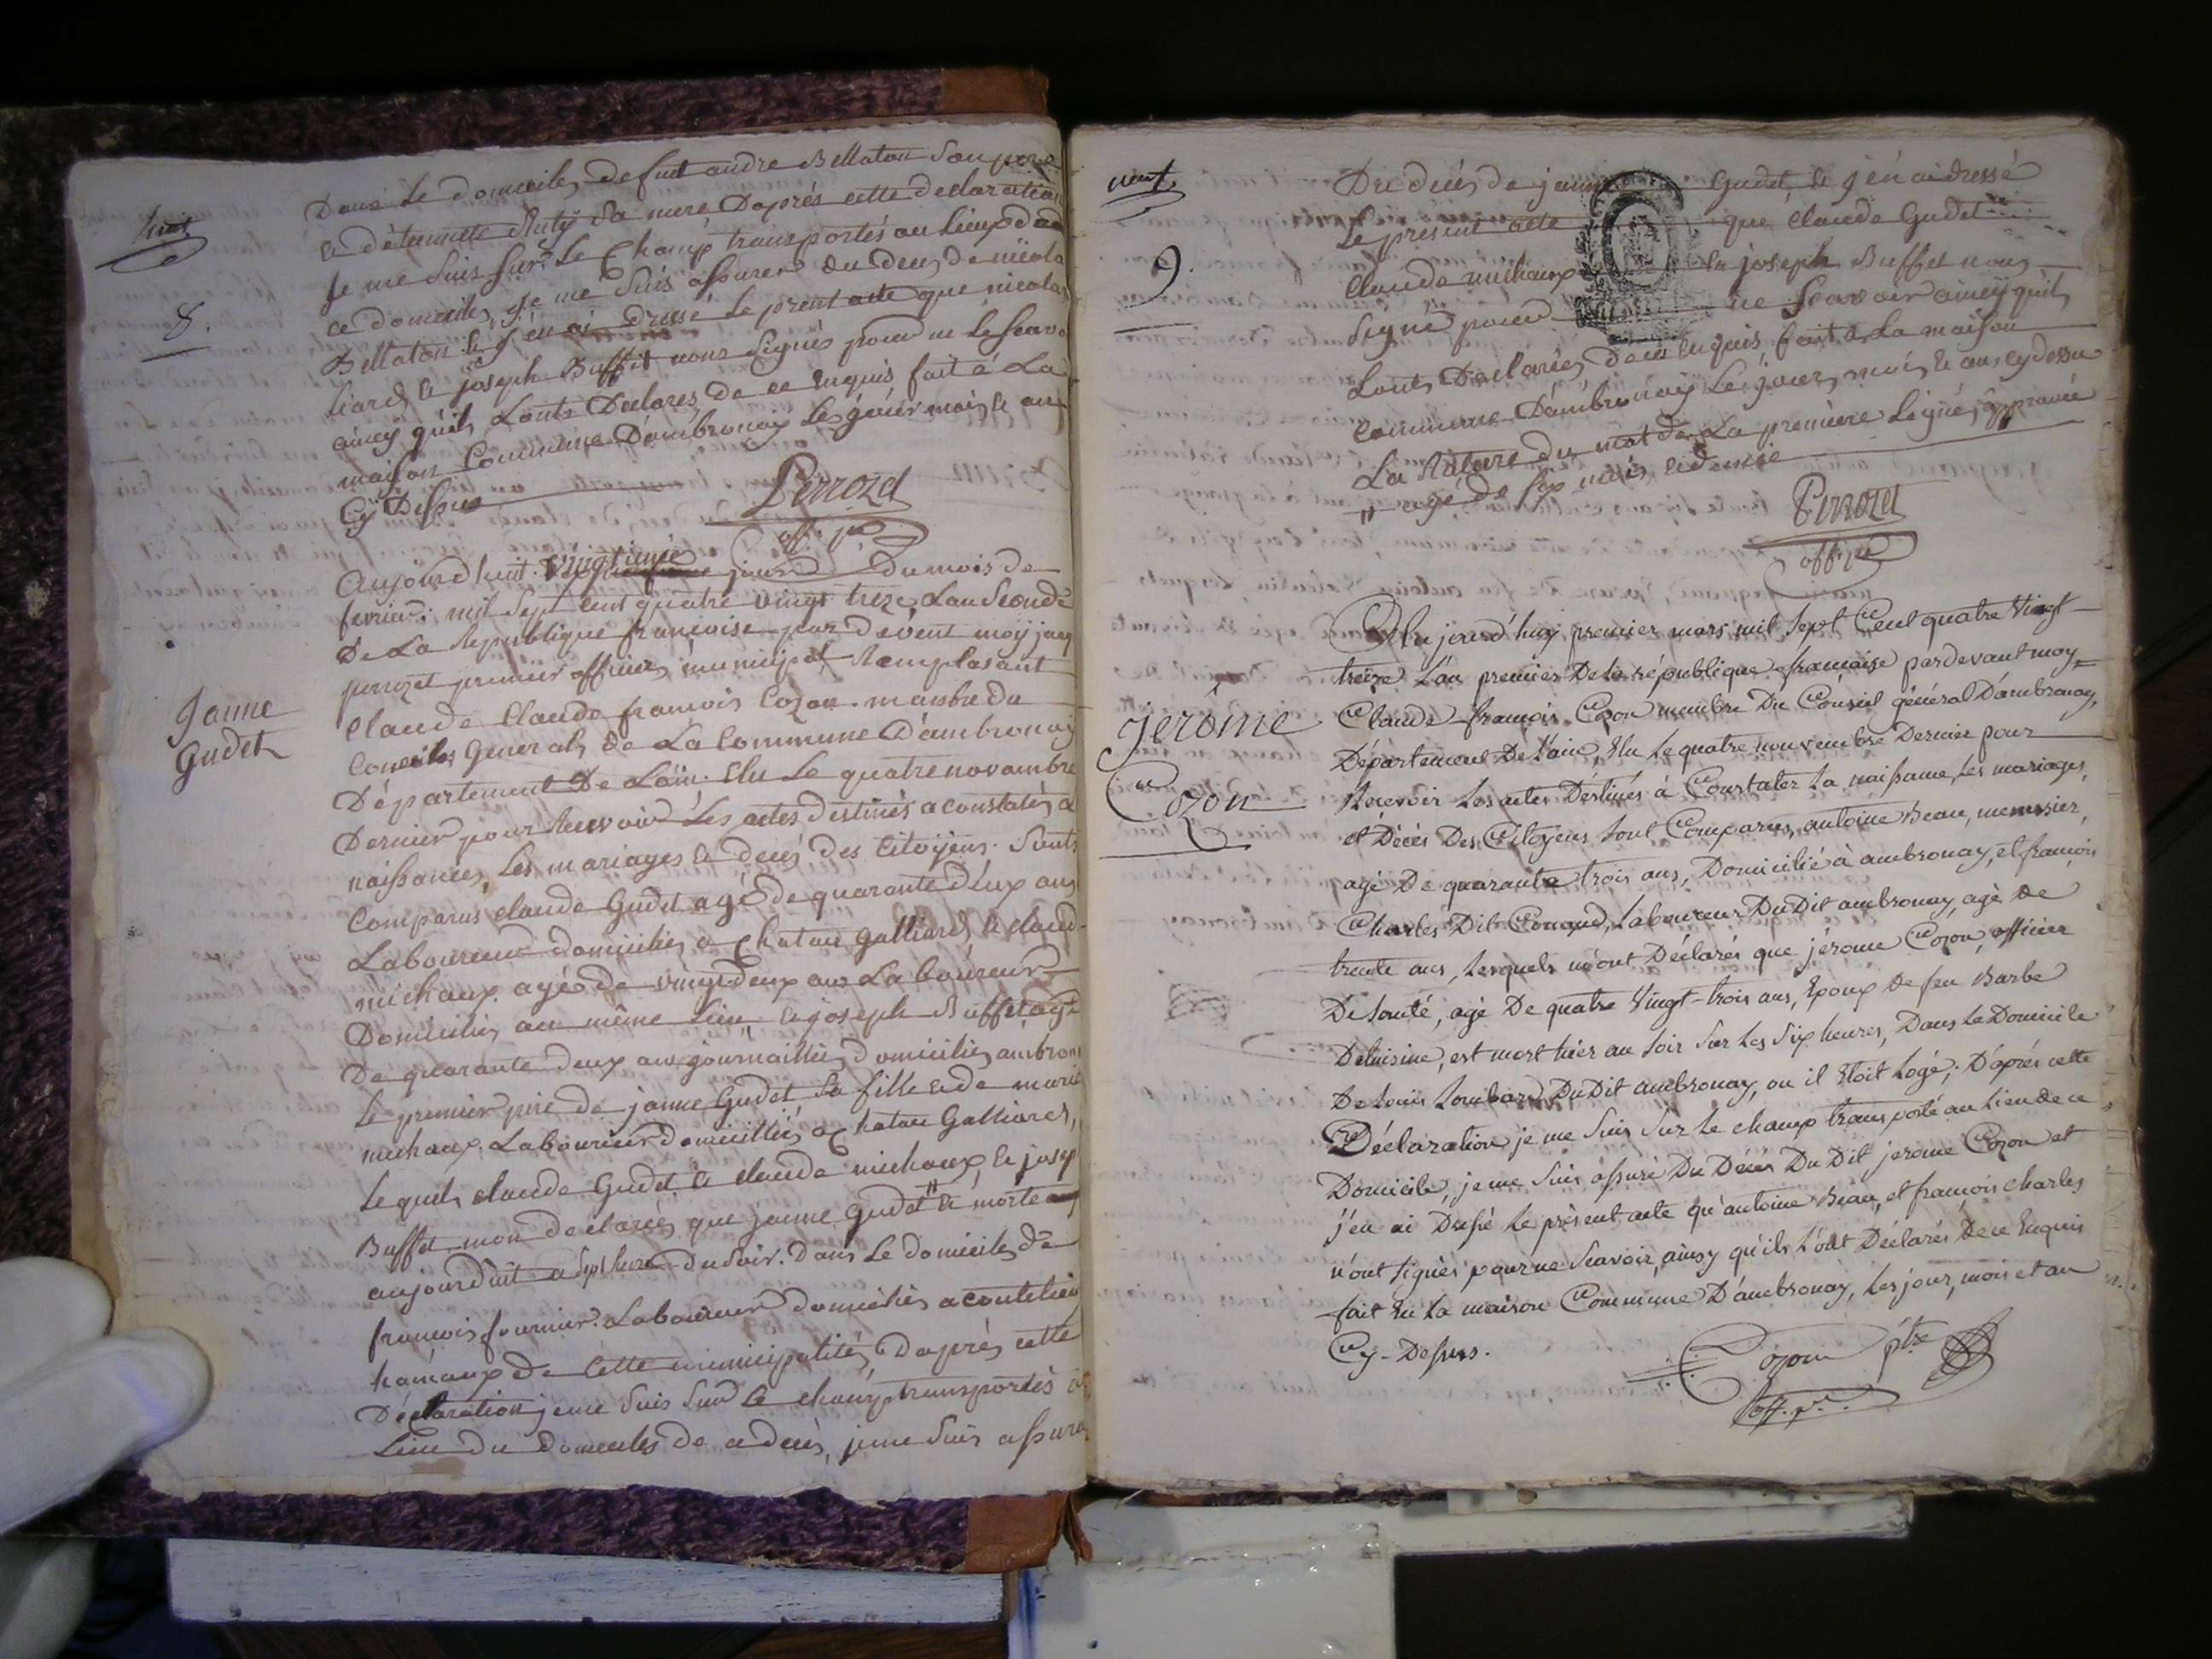 huit
8.
Dans Le domicile de fut andre Bellaton Son pere
Je me Suis Sur Le Champ transportés au Lieux de
ce domicile, Je me Suis assurer du deces de nicola
Bellaton & J'en ai dressé Le presnt acte que nicolas
liard & joseph Buffet nons Signés pour ne Le Scavo
aincy quils Lonts Declares de ce Enquis fait á La
maison Commune Dámbronay Les jóur mois & an
Cÿ Dessus
Perrozet
off. p.
Janne
Gudet
Aujourd huit. vingtieme jour du mois de
fevrier. mil Sept cent quatre vingt treze, Lan Seconde
De La Republique francoise par dévent moÿ jaq
perrozet premier officier municipal Remplasant
Claude Claude francois Cozon. manbre du
Conciles General de La Commune D'ambronay
Département De Loin. Elu Le quatre novambre
Dernier pour Recevoir Les actes destinés a constatés a
naissances, Les mariages & decés des Citoÿens. Sonts
Comparus claude Gudet agé de quarante deux ans
Laboureur domicilies a chatau Galliard, & claud
michaux. agé de vingt deux ans Laboureur
Domicilies au même Lieu & joseph Buffet agé
De quarante deux ans journaillies domicilies ambron
Le premier pire de janne Gudet Sa fille & de marie
michaux. Labourier domicilliés a chatau Galliard,
Lequels claude Gudet & claude michaux & josep
Buffet mon declarés que janne Gudet " & morte
aujourdhuit a Sept heure du Soir. Dans Le domiciles de
francois fournier. Laboureur domicilies a coutelieu
hamaux de Cette municipalités, D'aprés cette
Déclaration je me Suis Sur Le champ transportés
Lieu du domiciles de a decés, je me Suis assura
neuf
9.
Du decés de janne Gudet, & j'én ai dressé
Le présent acte que Claude Gudet
Claude michaux & joseph Buffet nons
Signé pour ne Scavoir aincÿ quils
Lonts Declarés de ce Enquis fait á La maison
Commune Dámbronaÿ Le jours, mois & ans cy dessu
La Rature du mot de La première Ligne, approuvée
" agé de six mois & demie
Perrozet
off. p.
jerome
Cozon
Aujourd'huy premier mars mil Sept Cent quatre Vingt
treize L'an premier De la république française pardevant moy
Claude françois Cozon membre Du Conseil général D'ambronay,
Département De L'ain, Elu Le quatre nonvembre Dernier pour
Recevoir Les actes Déstinés à Constater La naissance, Les mariages,
et Décès Des Citoyens Sont Comparus, antoine Beau, menusier,
agé De quarante trois ans, Domicilié à ambronay, et françois
Charles Dit Conand, Laboureur Du Dit ambronay, agé de
trente ans, Lesquels m'ont Déclarés que jérome Cozon, officier
De santé, agé De quatre Vingt-trois ans, Epoux de feu Barbe
Delaisine, est mort hier au Soir Sur Les Six heures, Dans Le Domicile
De Louis Lombard Du Dit ambronay, ou il Etoit Logé; D'aprés cette
Déclaration je me Suis Sur Le champ transporté au Lieu de ce
Domicile, je me Suis assuré Du Décés Du Dit jerome Cozon et
j'en ai Dressé Le présent acte qu'antoine Beau, et françois charles
n'ont signés pour ne Scavoir, ainsy qu'ils L'ont Déclarés De ce Enquis
fait En La maison Commune D'ambronay, Les jour, mois et an
Cy-Dessus.
Cozon ptre
off. p.